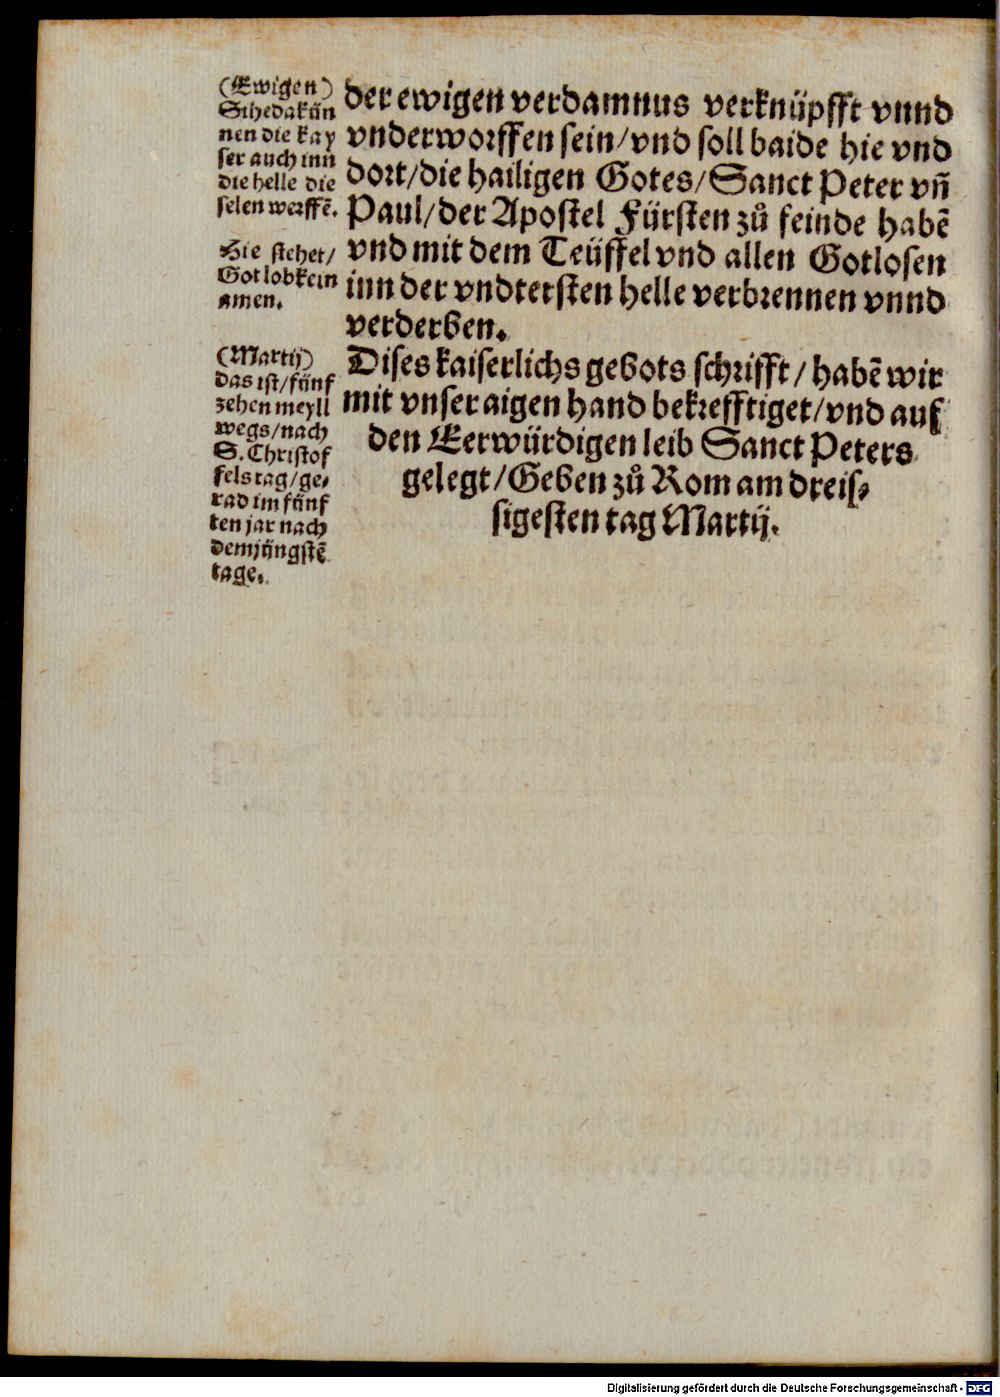 (Ewigen)
Sihe da kün
nen die kay
ser auch inn
die helle die
selen werffē.
Hie stehet/
Got lob kein
amen.
(Martij)
das ist/fünf
zehen meyll
wegs/nach
S. Christof
fels tag/ge⸗
rad im fünf
ten jar nach
dem jüngstē
tage.
der ewigen verdamnus verknüpfft vnnd
vnderworffen sein/vnd soll baide hie vnd
dort/die hailigen Gotes/Sanct Peter vñ
Paul/der Apostel Fürsten zů feinde habē
vnd mit dem Teüffel vnd allen Gotlosen
inn der vndtersten helle verbrennen vnnd
verderben.
Dises kaiserlichs gebots schrifft/habē wir
mit vnser aigen hand bekrefftiget/vnd auf
den Eerwürdigen leib Sanct Peters
gelegt/Geben zů Rom am dreis⸗
sigesten tag Martij.
Digitalisierung gefördert durch die Deutsche Forschungsgemeinschaft - DFG